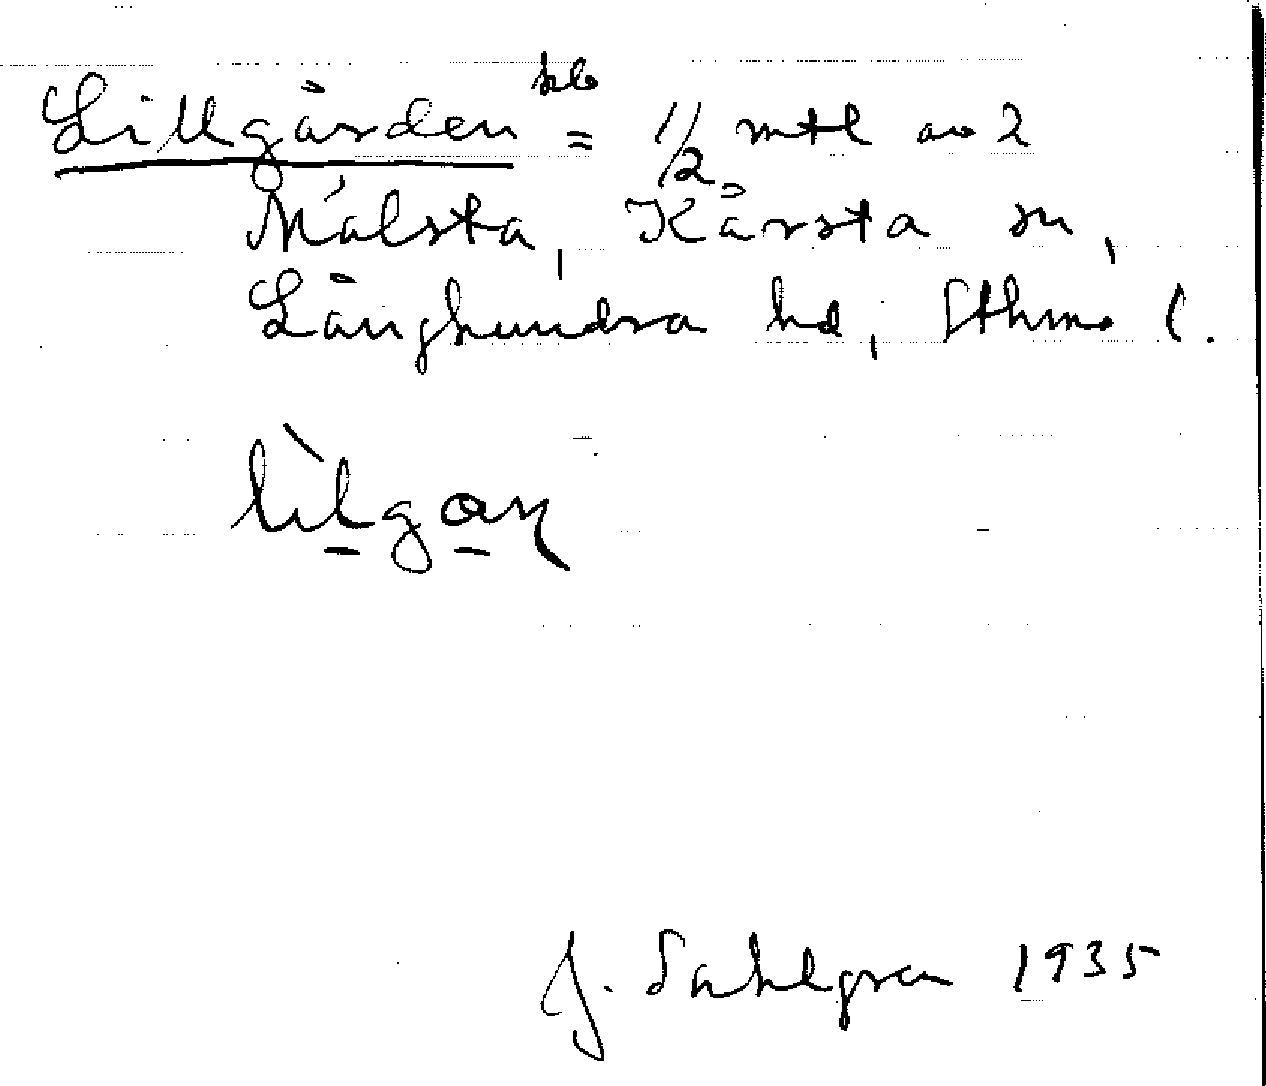 Lillgården hb = 1/2 mtl av 2
Målsta, Kårsta sn,
Långhundra hd, Sthms l.
lìlgɑɳ
J. Sahlgren 1935